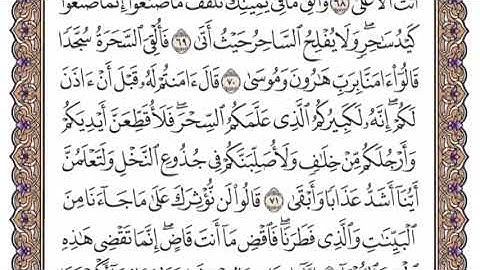 أَنتَ ٱلْأَعْلَىٰ ٦٨ وَأَلْقِ مَا فِى يَمِينِكَ تَلْقَفْ مَا صَنَعُوٓا۟ إِنَّمَا صَنَعُوا۟
كَيْدُ سَٰحِرٍ وَلَا يُفْلِحُ ٱلسَّاحِرُ حَيْثُ أَتَىٰ ٦٩ فَأُلْقِىَ ٱلسَّحَرَةُ سُجَّدًا
قَالُوٓا۟ ءَامَنَّا بِرَبِّ هَٰرُونَ وَمُوسَىٰ ٧٠ قَالَ ءَامَنتُمْ لَهُۥ قَبْلَ أَنْ ءَاذَنَ
لَكُمْ إِنَّهُۥ لَكَبِيرُكُمُ ٱلَّذِى عَلَّمَكُمُ ٱلسِّحْرَ فَلَأُقَطِّعَنَّ أَيْدِيَكُمْ
وَأَرْجُلَكُم مِّنْ خِلَٰفٍ وَلَأُصَلِّبَنَّكُمْ فِى جُذُوعِ ٱلنَّخْلِ وَلَتَعْلَمُنَّ
أَيُّنَآ أَشَدُّ عَذَابًا وَأَبْقَىٰ ٧١ قَالُوا۟ لَن نُّؤْثِرَكَ عَلَىٰ مَا جَآءَنَا مِنَ
ٱلْبَيِّنَٰتِ وَٱلَّذِى فَطَرَنَا فَٱقْضِ مَآ أَنتَ قَاضٍ إِنَّمَا تَقْضِى هَٰذِهِ